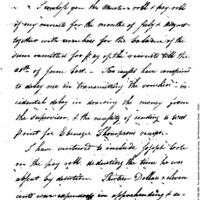 I enclose you the muster roll & pay roll
of my recruits for the months of July & August
together with vouchers for the balance of the
sum remitted for pay of the recruits till the
of June last - Two causes have conspired
to delay me in transmitting the vouchers - in-
cidental delay in drawing the money from
the Supervisor & the necessity of sending to West
point for Ebenezer Thompson's
I have ventured to include Joseph Cole
on the pay roll deducting the time he was
absent by desertion. Dollars &
cents were expended in apprehending &